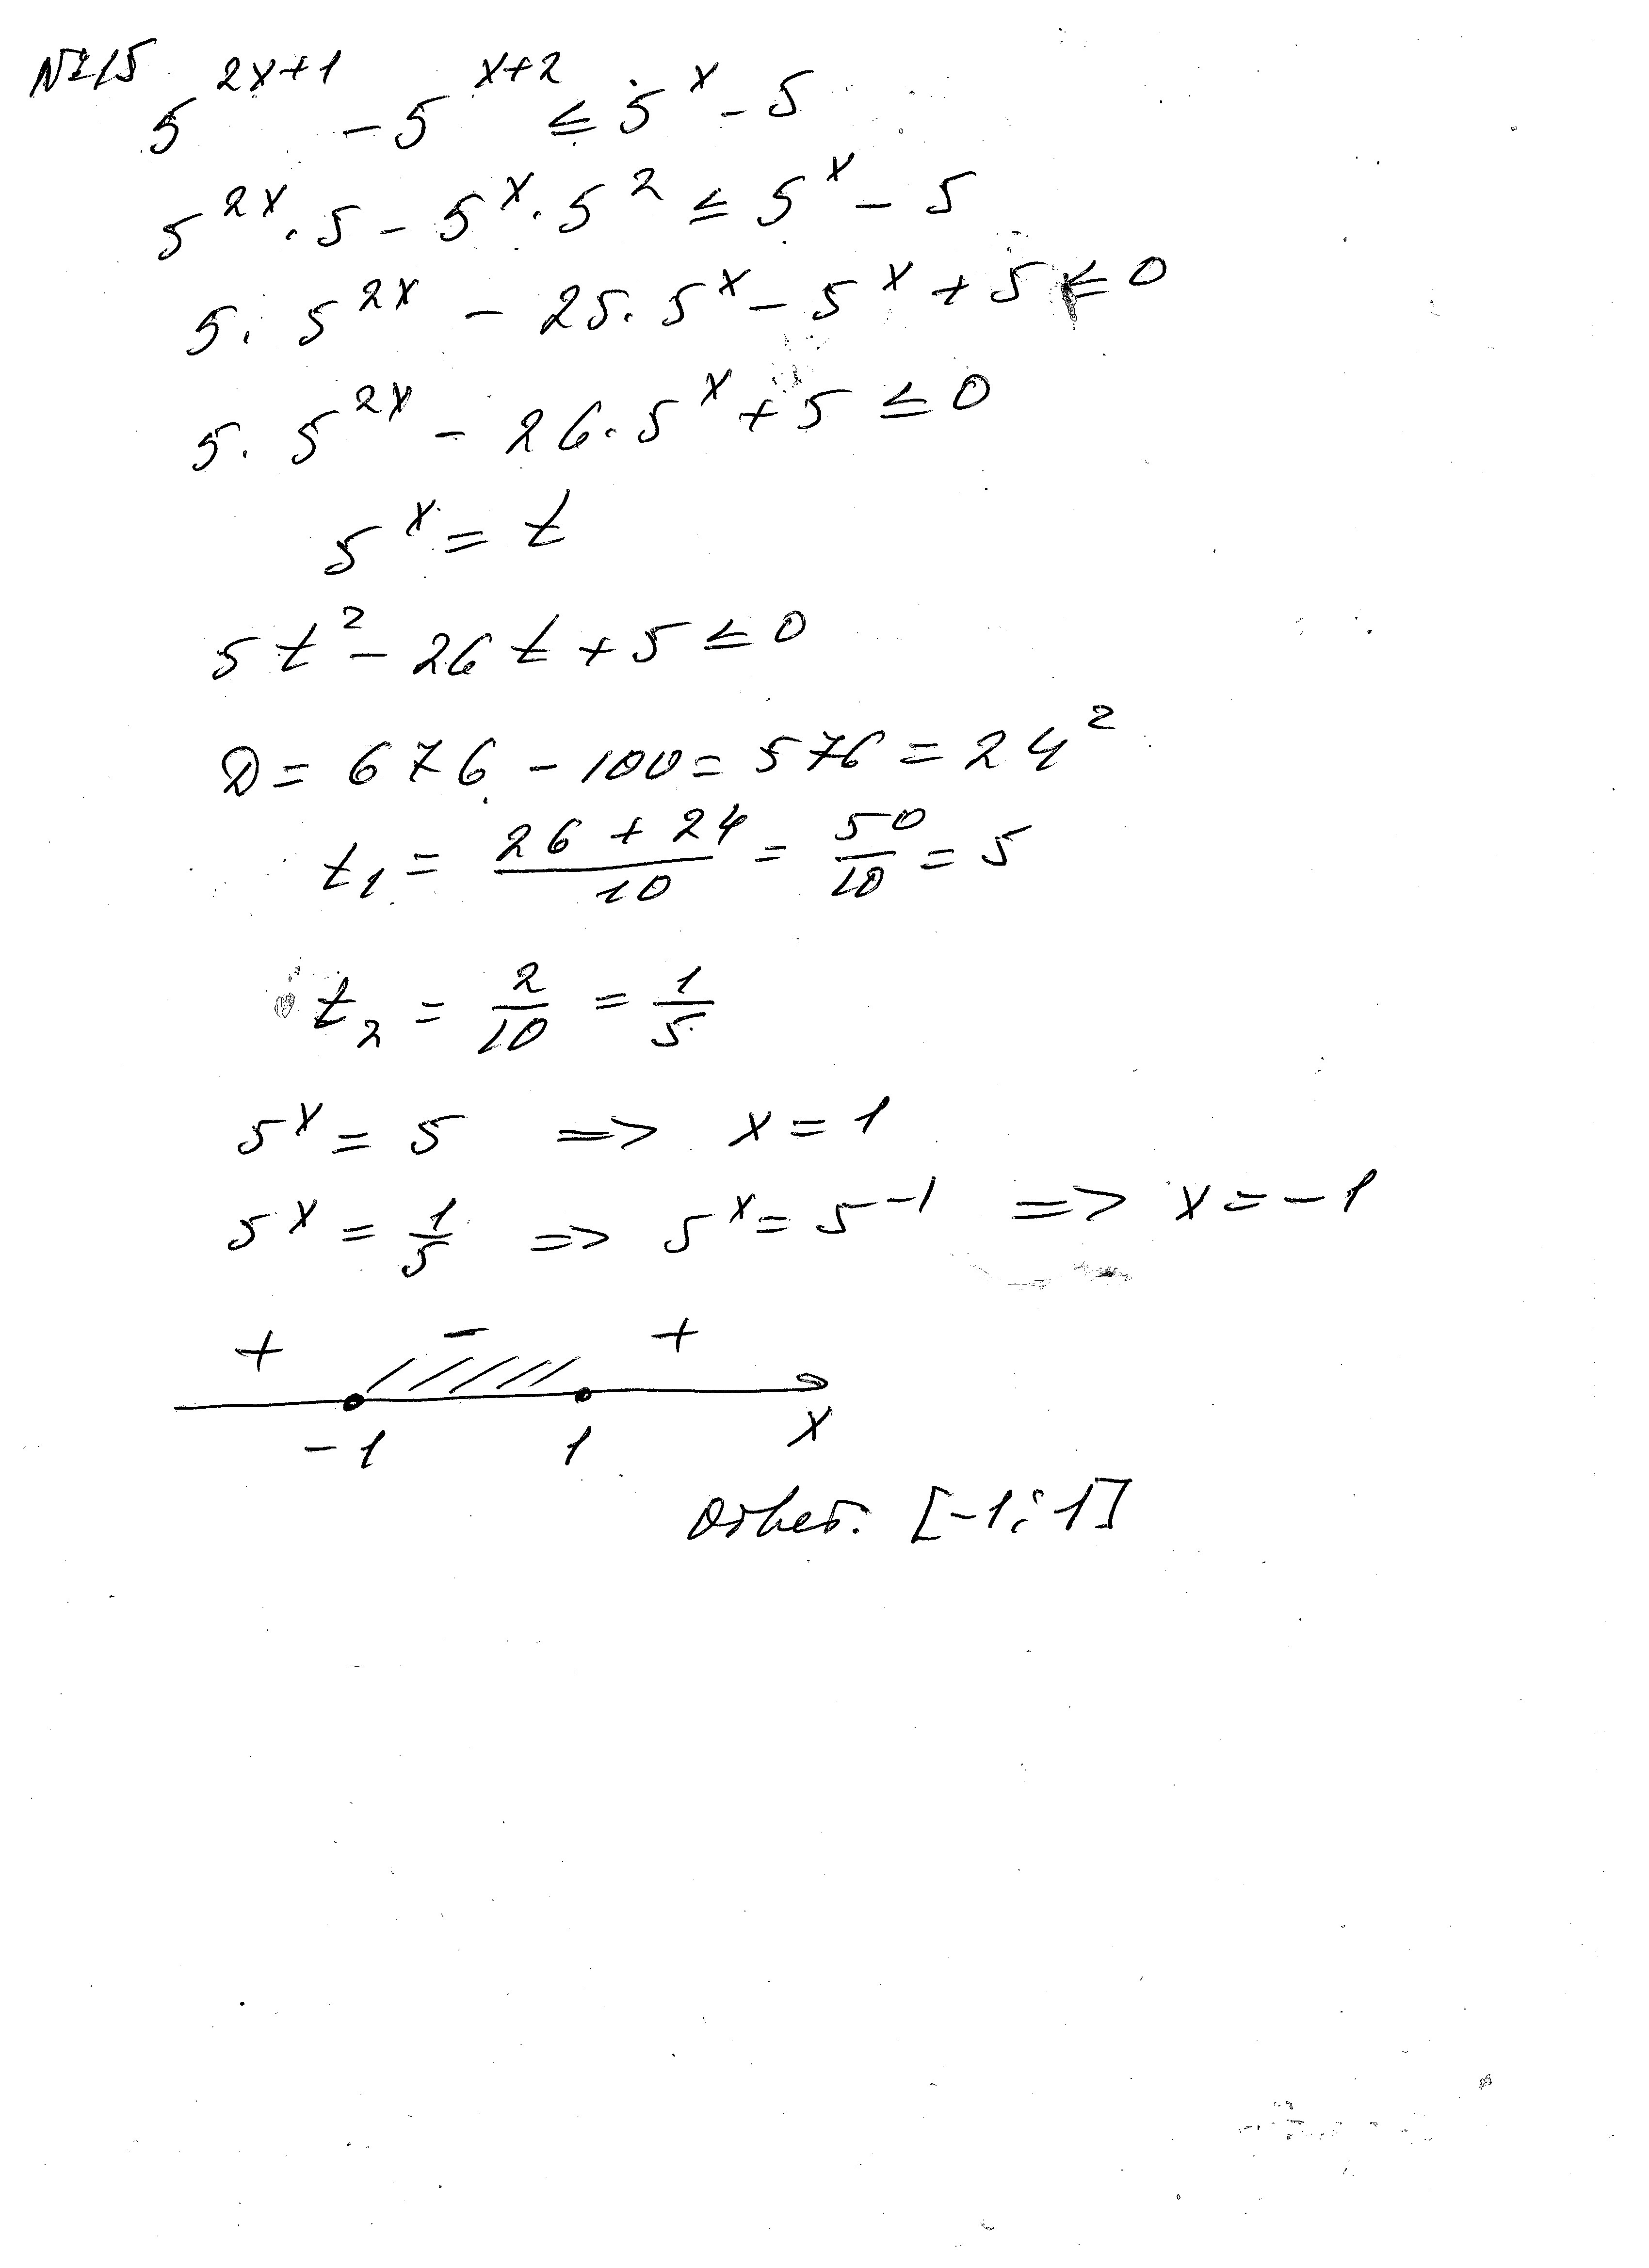 №15 5^{2x+1} - 5^{x+2} ≤ 5^x - 5
5^{2x} · 5 - 5^x · 5^2 ≤ 5^x - 5
5 · 5^{2x} - 25 · 5^x - 5^x + 5 ≤ 0
5 · 5^{2x} - 26 · 5^x + 5 ≤ 0
5^x = t
5t^2 - 26t + 5 ≤ 0
D = 676 - 100 = 576 = 24^2
t_1 = \frac{26 + 24}{10} = \frac{50}{10} = 5
t_2 = \frac{2}{10} = \frac{1}{5}
5^x = 5 => x = 1
5^x = \frac{1}{5} => 5^x = 5^{-1} => x = -1
+ - +
-1 1 x
Ответ. [-1; 1]